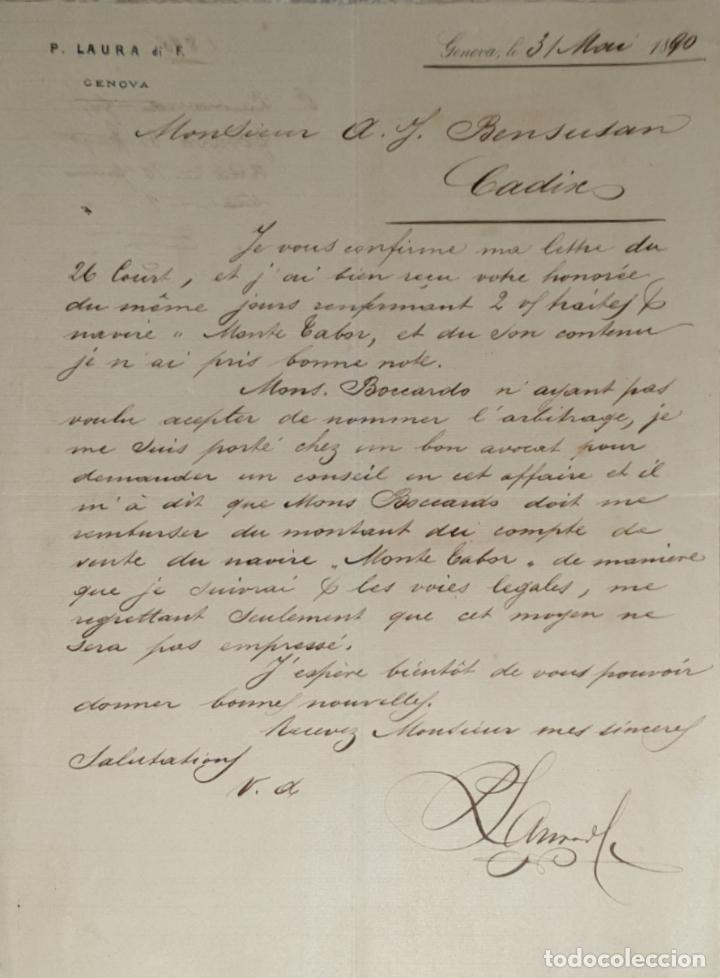 P. LAURA di F.
GENOVA
Genova, le 31 Mai 1890
Monsieur A. J. Bensusan
Cadix
Je vous confirme ma lettre du
26 Court, et j'ai bien reçu votre honorée
du même jours renfermant 2 v/ traites
navire „ Monte Tabor, et du son contenu
je n'ai pris bonne note.
Mons. Boccardo n'ayant pas
voulu acepter de nommer l'arbitrage, je
me suis porté chez un bon avocat pour
demander un conseil en cet affaire et il
m'à dit que Mons Boccardo doit me
remburser du montant du compte de
vente du navire „ Monte Tabor „ de maniere
que je suivrai les voies legales, me
regrettant seulement que cet moyen ne
sera pas empressé.
J'espère bientôt de vous pouvoir
donner bonnes nouvelles.
Recevez Monsieur mes sinceres
Salutations
V. d
P Laura di F.
todocoleccion.net